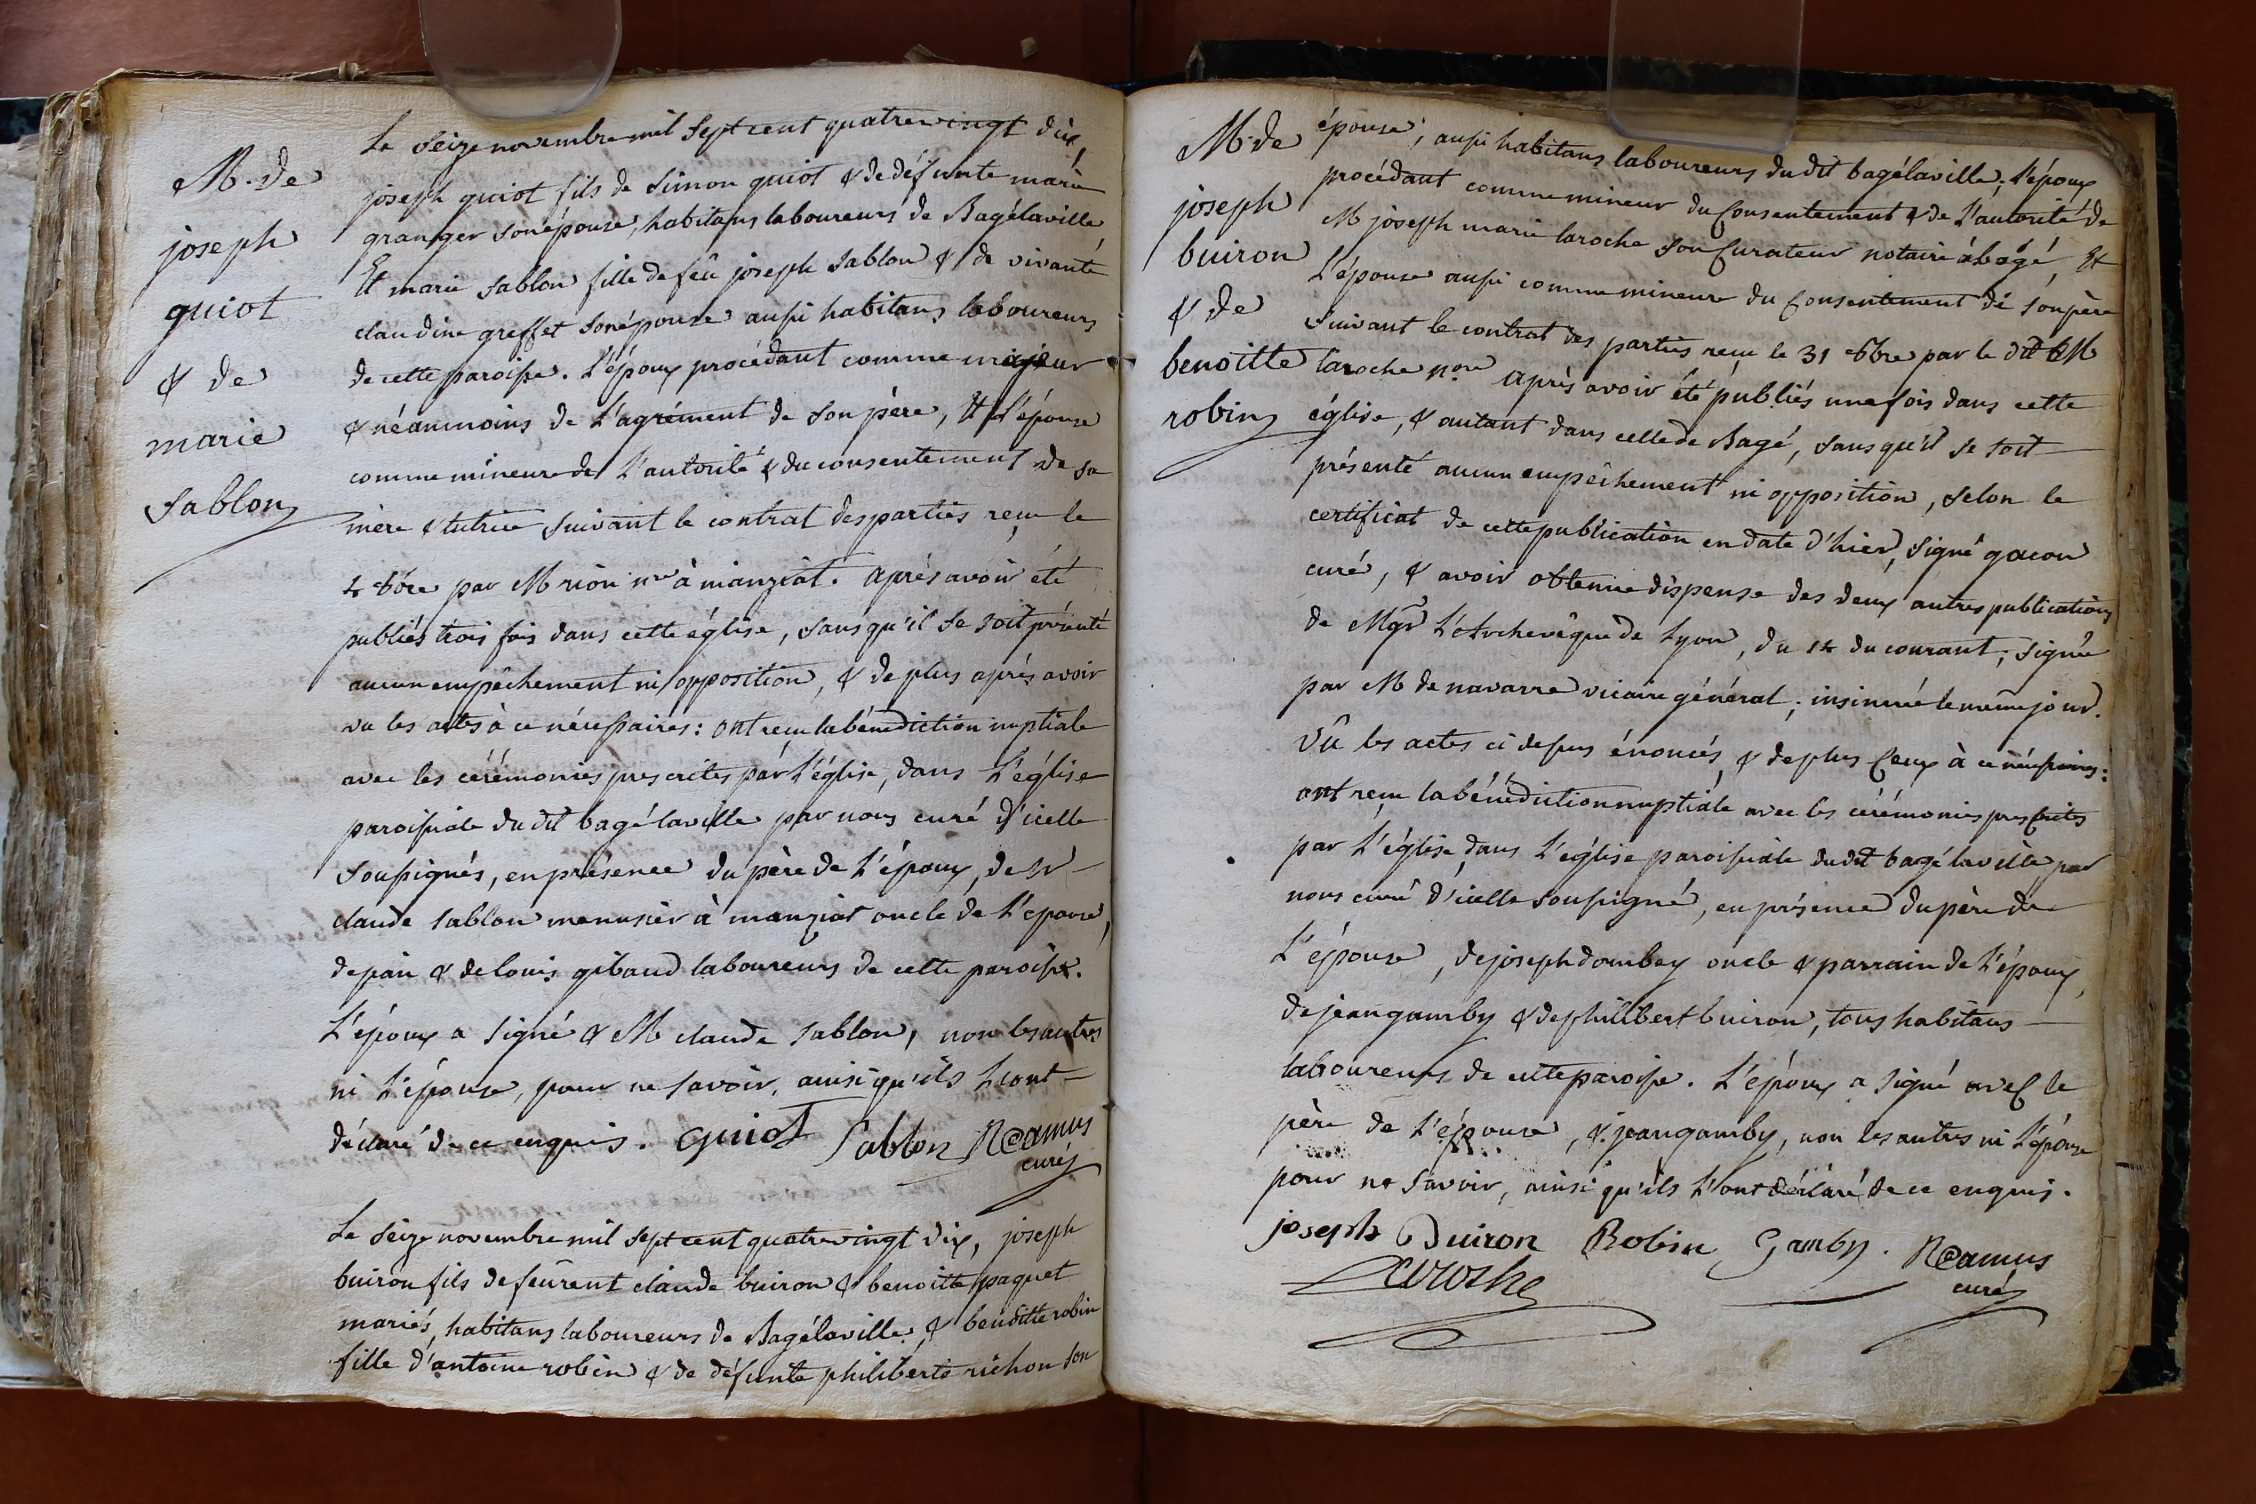 M. de
joseph
guiot
& de
marie
Sablon
Le seize novembre mil sept cent quatrevingt dix,
joseph guiot fils de simon guiot & de défunte marie
granger son épouse, habitans laboureurs de Bagélaville
Et marie sablon fille de feû joseph sablon & de vivante
claudine greffet son épouse aussi habitans laboureurs
de cette paroisse. L'époux procédant comme majeur
& néanmoins de l'agrément de son père, Et l'épouse
comme mineure de l'autorité & du consentement de sa
mère & tutrice suivant le contrat des parties reçu le
4 8bre par M rion nre à manziat. après avoir été
publiés trois fois dans cette église, sans qu'il se soit présenté
aucun empêchement ni opposition, & de plus après avoir
vu les actes à ce nécessaires: ont reçu la bénédiction nuptiale
avec les cérémonies prescrites par l'église, dans l'église
paroissiale du dit bagélaville par nous curé d'icelle
soussignés, en présence du père de l'époux, de Sr
claude sablon menusier à manziat oncle de l'epouse,
de pain & de louis gibaud laboureurs de cette paroisse.
L'époux a signé & M claude sablon, non les autres
ni l'épouse, pour ne savoir, ainsi qu'ils l'ont
déclaré de ce enquis. Guiot Sablon Camus
curé
Le seize novembre mil sept cent quatrevingt dix, joseph
buiron fils de feûrent claude buiron & benoitte paquet
mariés, habitans laboureurs de Bagélaville, & benoitte robin
fille d'antoine robin & de défunte philiberte richon son
M. de
joseph
buiron
& de
benoitte
robin
épouse; aussi habitans laboureurs du dit bagélaville; l'époux
procédant comme mineur du consentement & de l'autorité de
M joseph marie laroche son curateur notaire à bagé, Et
l'épouse aussi comme mineure du consentement de son père
suivant le contrat des parties reçu le 31 8bre par le dit M
laroche nore après avoir été publiés une fois dans cette
église, & autant dans celle de Bagé, sans qu'il se soit
présenté aucun empêchement ni opposition, selon le
certificat de cette publication en date d'hier, signé gacon
curé, & avoir obtenue dispense des deux autres publications
de Mgr l'Archevêque de Lyon, du 14 du courant; signée
par M de navarre vicaire général; insinuée le même jour.
Vû les actes ci dessus énoncés, & de plus ceux à ce nécessaires:
ont reçu la bénédiction nuptiale avec les cérémonies prescrites
par l'église dans l'église paroissiale du dit bagélaville par
nous curé d'icelle soussigné, en présence du père de
l'épouse, de joseph dombey oncle & parrain de l'époux,
de jean gamby & de philibert buiron, tous habitans
laboureurs de cette paroisse. L'époux a signé avec le
père de l'épouse, & jean gamby, non les autres ni l'épouse
pour ne savoir, ainsi qu'ils l'ont déclaré de ce enquis.
joseph Buiron Robin Gamby. Camus
Laroche curé